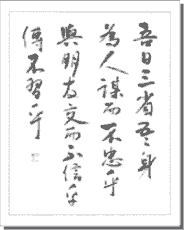 吾日三省吾身
為人謀而不忠乎
與朋友交而不信乎
傳不習乎